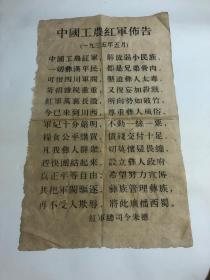 中國工農紅軍佈告
(一九三五年五月)
中國工農紅軍,解放弱小民族,
一切彝漢平民,都是兄弟骨肉,
可恨四川軍閥,壓迫彝人太毒,
苛捐雜稅重重,又復妄加殺戮,
紅軍萬里長征,所向勢如破竹,
今已來到川西,尊重彝人風俗,
軍紀十分嚴明,不動一絲一粟,
糧食公平購買,價錢交付十足,
凡我彝人群衆,切莫懷疑畏縮,
趕快團結起來,共把軍閥驅逐,
設立彝人政府,彝族管理彝族,
真正平等自由,再不受人欺辱,
希望努力宣傳,將此廣播西蜀。
紅軍總司令朱德